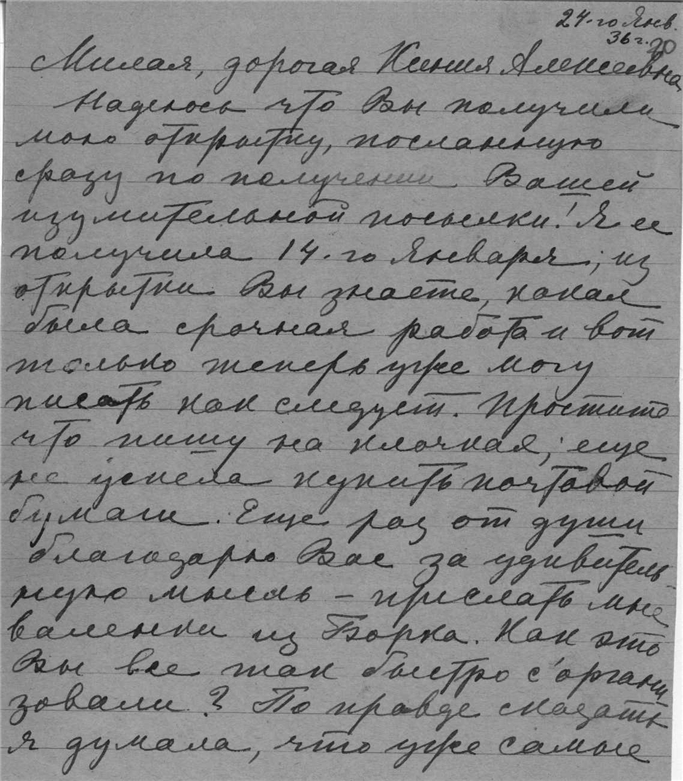 24-го Янв.
36 г.
Милая, дорогая Ксения Алексеевна
Надеюсь что Вы получили
мою открытку, посланную
сразу по получении Вашей
изумительной посылки! Я ее
получила 14-го Января; из
открытки Вы знаете, какая
была срочная работа и вот
только теперь уже могу
писать как следует. Простите
что пишу на клочках; еще
не успела купить почтовой
бумаги. Еще раз от души
благодарю Вас за удивитель-
ную мысль – прислать мне
валенки из Борка. Как это
Вы все так быстро с'органи
зовали? По правде сказать
я думала, что уже самые